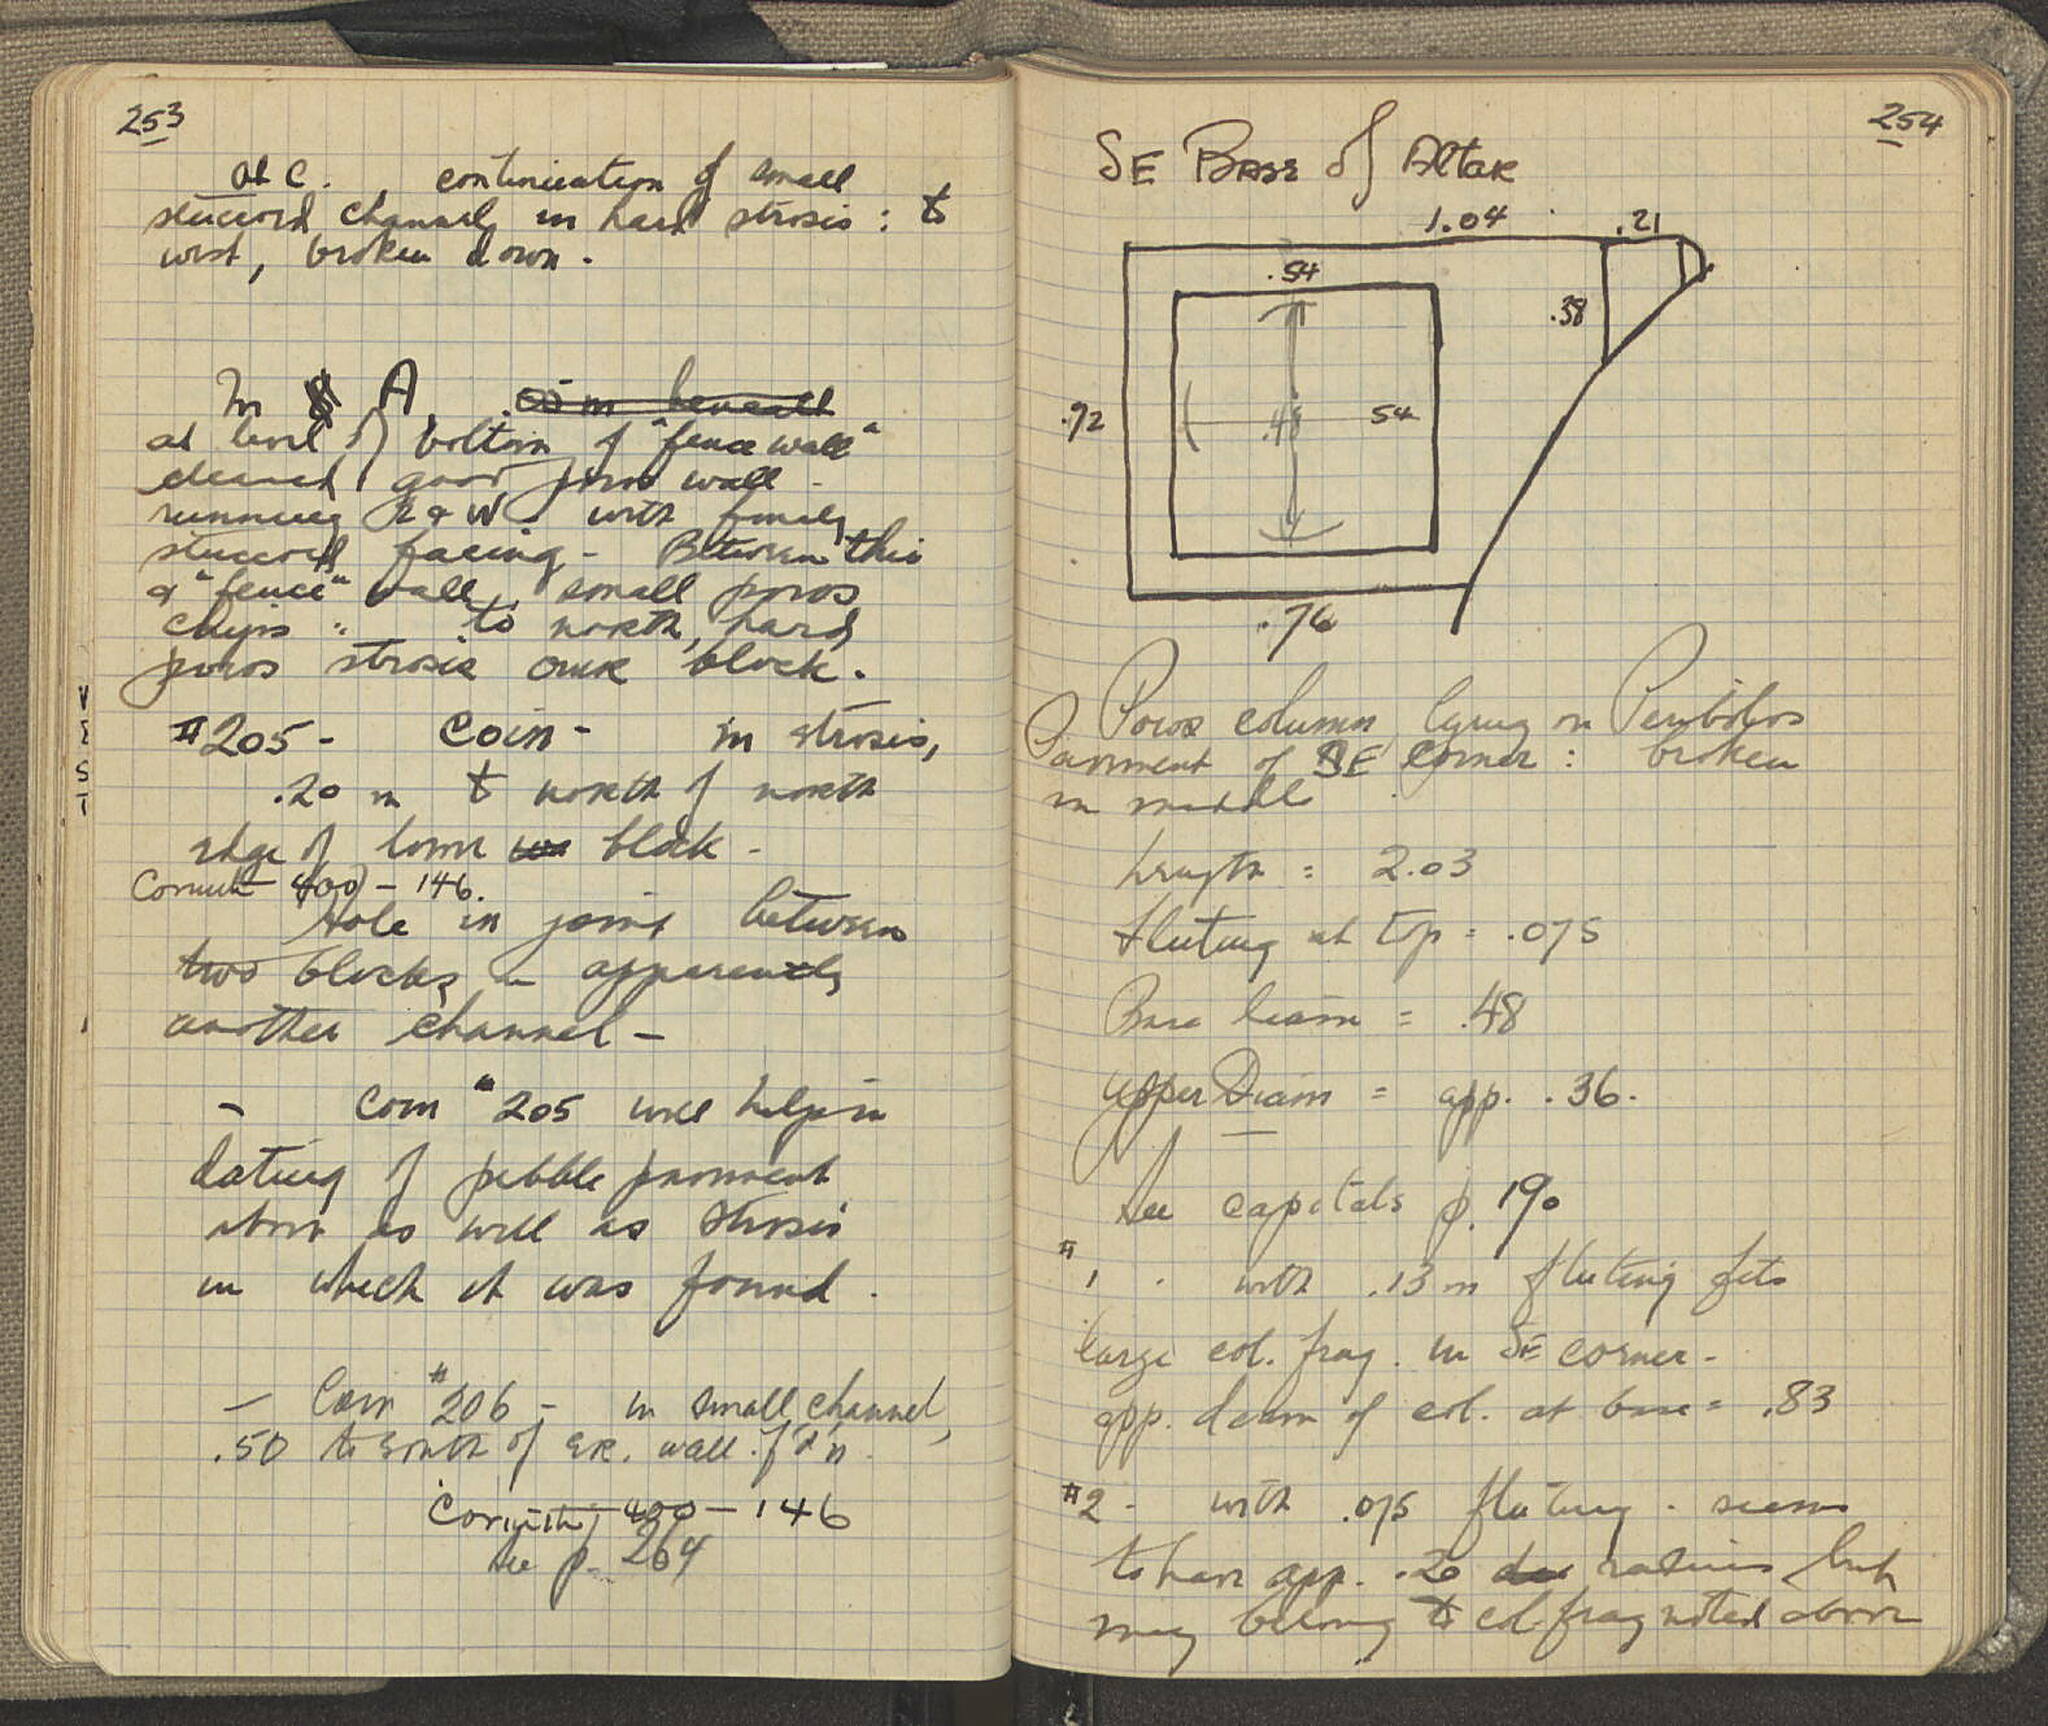 253
At C. continuation of small
stuccoed channel in hard strosis : to
west, broken down.
In A. .05 m beneath
at level of bottom of "fence wall"
cleared good poros wall -
running E & W. with finely
stuccoed facing - Between this
& "fence" wall, small poros
chips : to north, hard
poros strosis over block.
#205 - Coin - in strosis,
.20 m to north of north
edge of lower block -
Corinth 400 - 146.
Hole in joint between
two blocks - apparently
another channel -
- Coin #205 will help in
dating of pebble pavement
above as well as strosis
in which it was found.
- Coin #206 - in small channel,
.50 to south of wall
Corinth 400 - 146
see p. 264
VEST
254
SE Base of Altar
1.04 .21
.54
.38
.92 .48 54
.76
Poros column lying on Peribolos
Pavement of SE Corner : broken
in middle
Length = 2.03
fluting at top = .075
Base diam = .48
Upper Diam = app. .36.
See capitals p. 190
#1 . with .13 m fluting fits
large col. frag. in SE corner -
app. diam of col. at base = .83
#2 - with .075 fluting - seems
to have app. .20 radius but
may belong to col. frag noted above